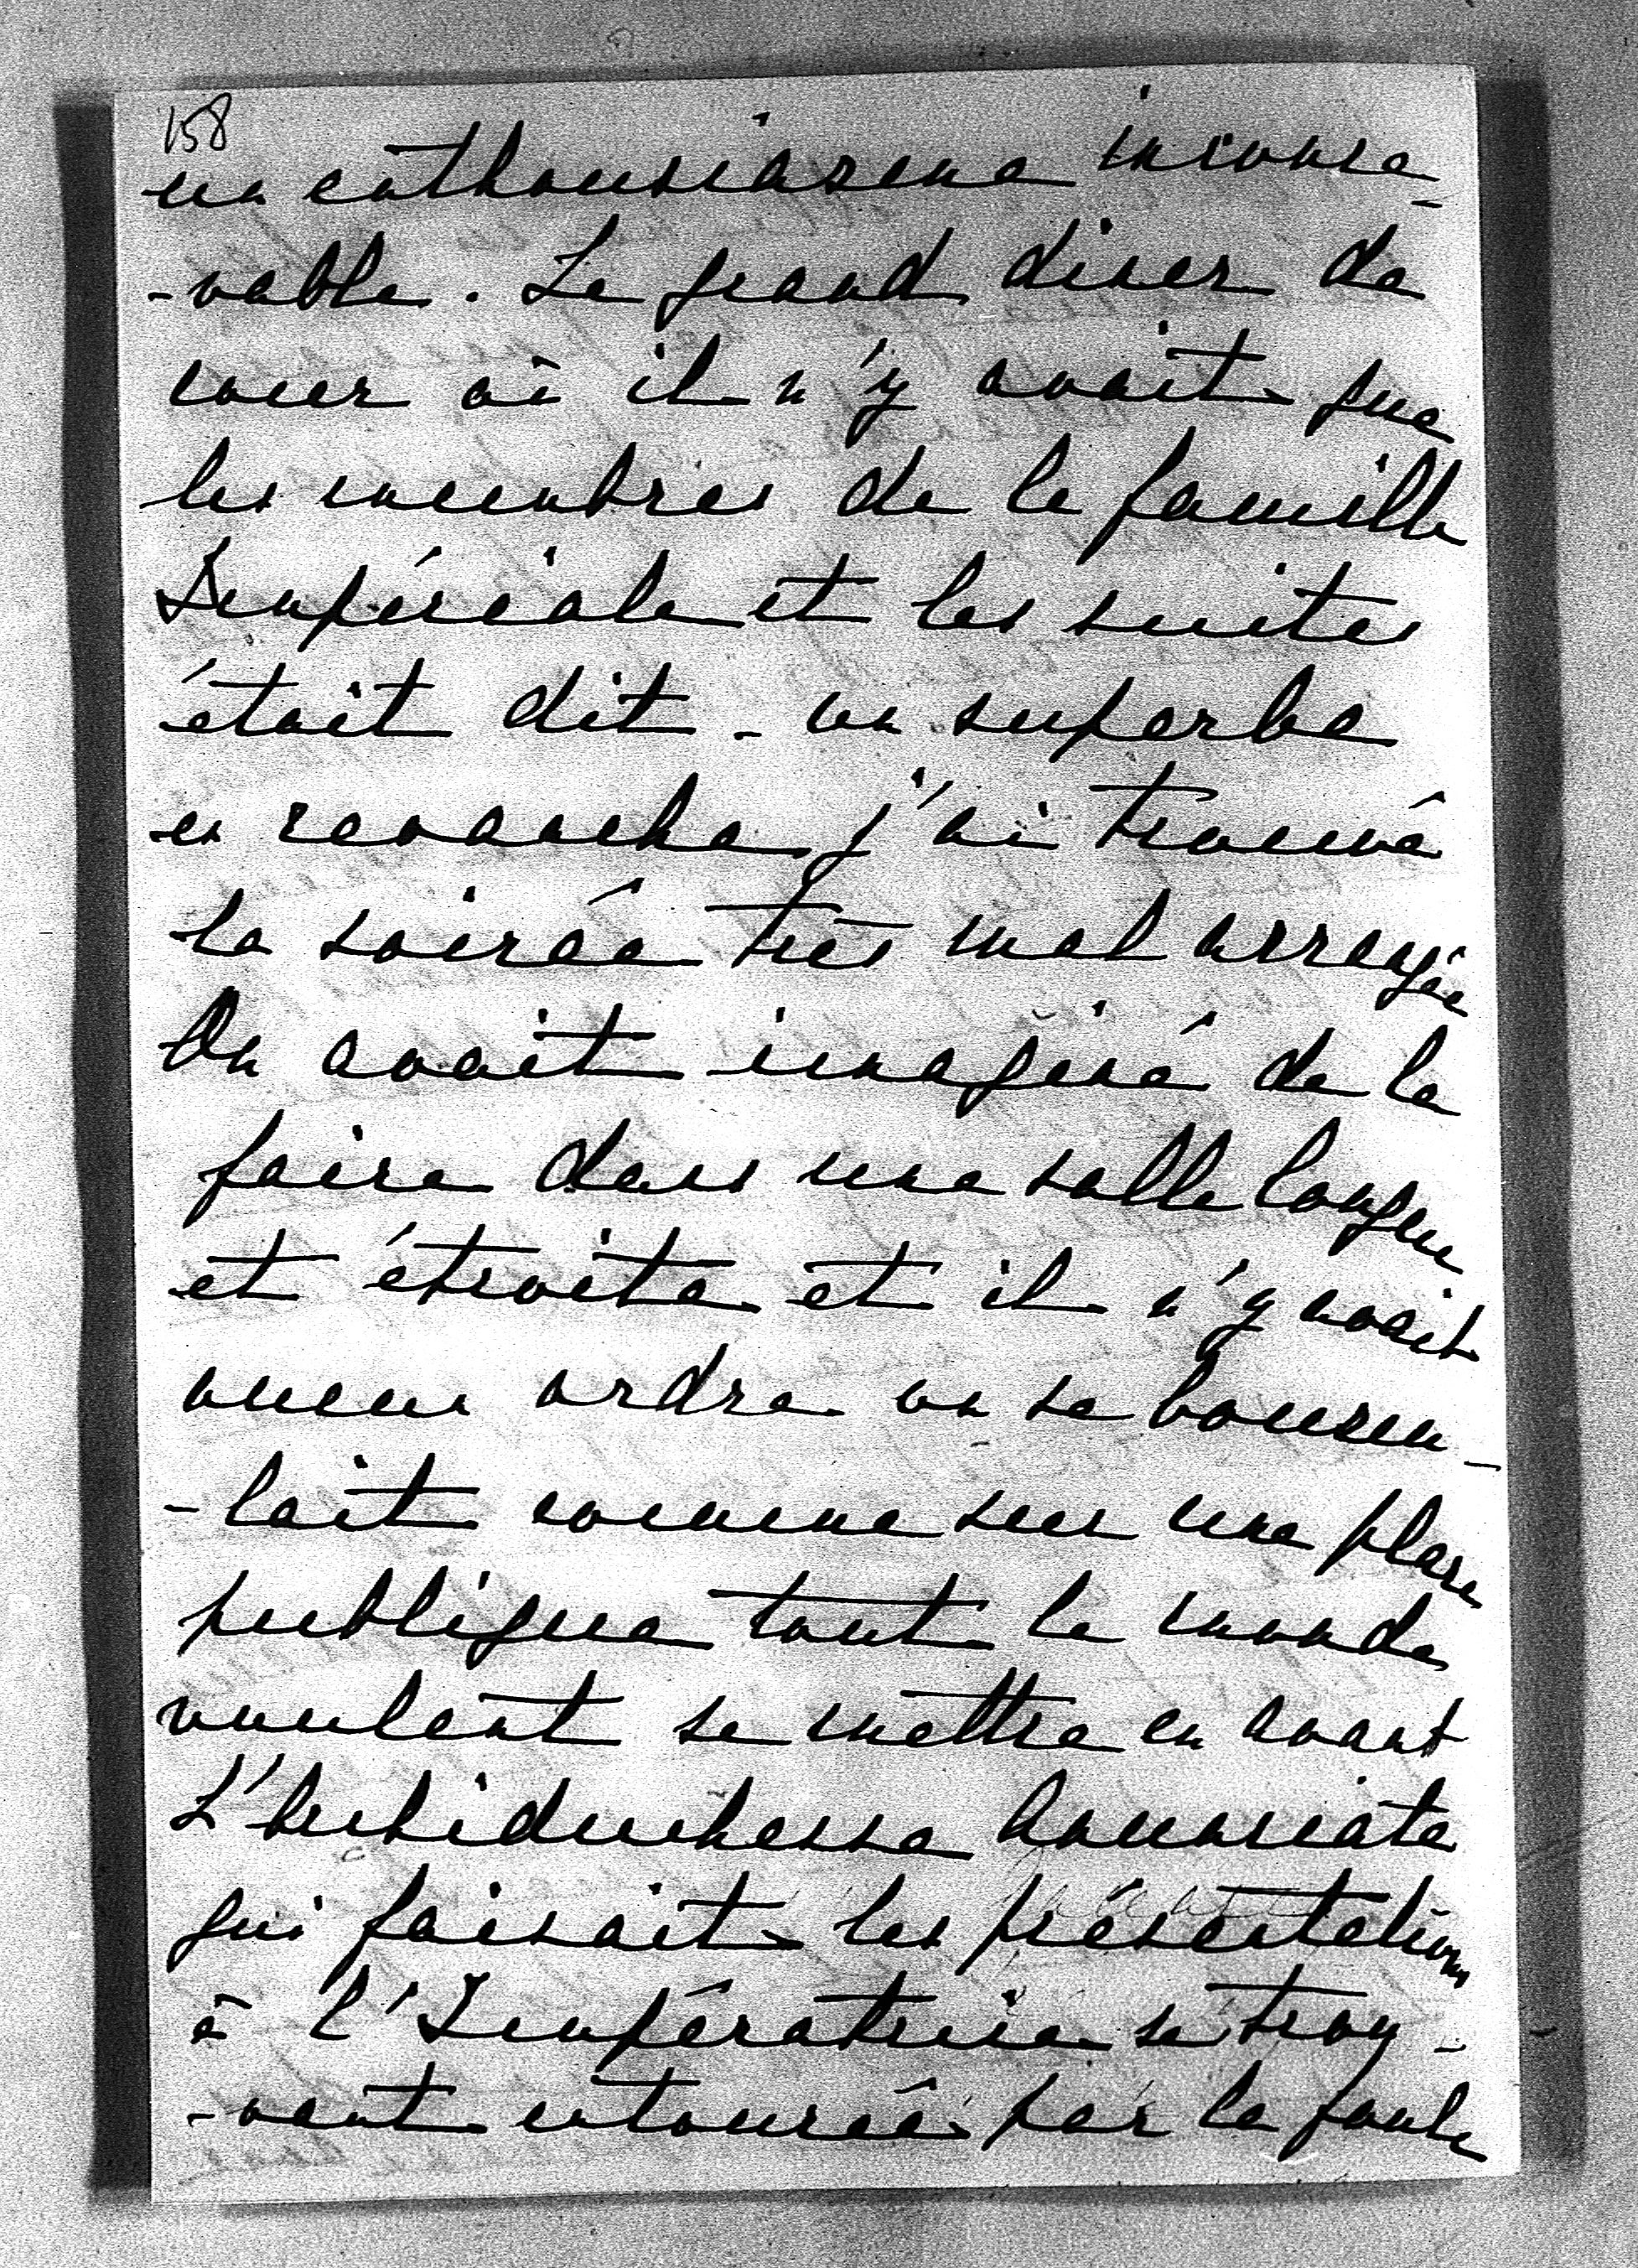 158
un enthousiasme inconce-
-vable. Le grand diner de
cour où il n'y avait que
les membres de la famille
Impériale et les suites
était dit-on superbe
en revanche j'ai trouvé
la soirée très mal arrangée
On avait imaginé de la
faire dans une salle longue
et étroite et il n'y avait
aucun ordre on se bouscu-
-lait comme sur une place
publique tout le monde
voulant se mettre en avant
L'Archiduchesse Annonciate
qui faisait les présentations
à l'Impératrice se trou-
-vant entourée par la foule